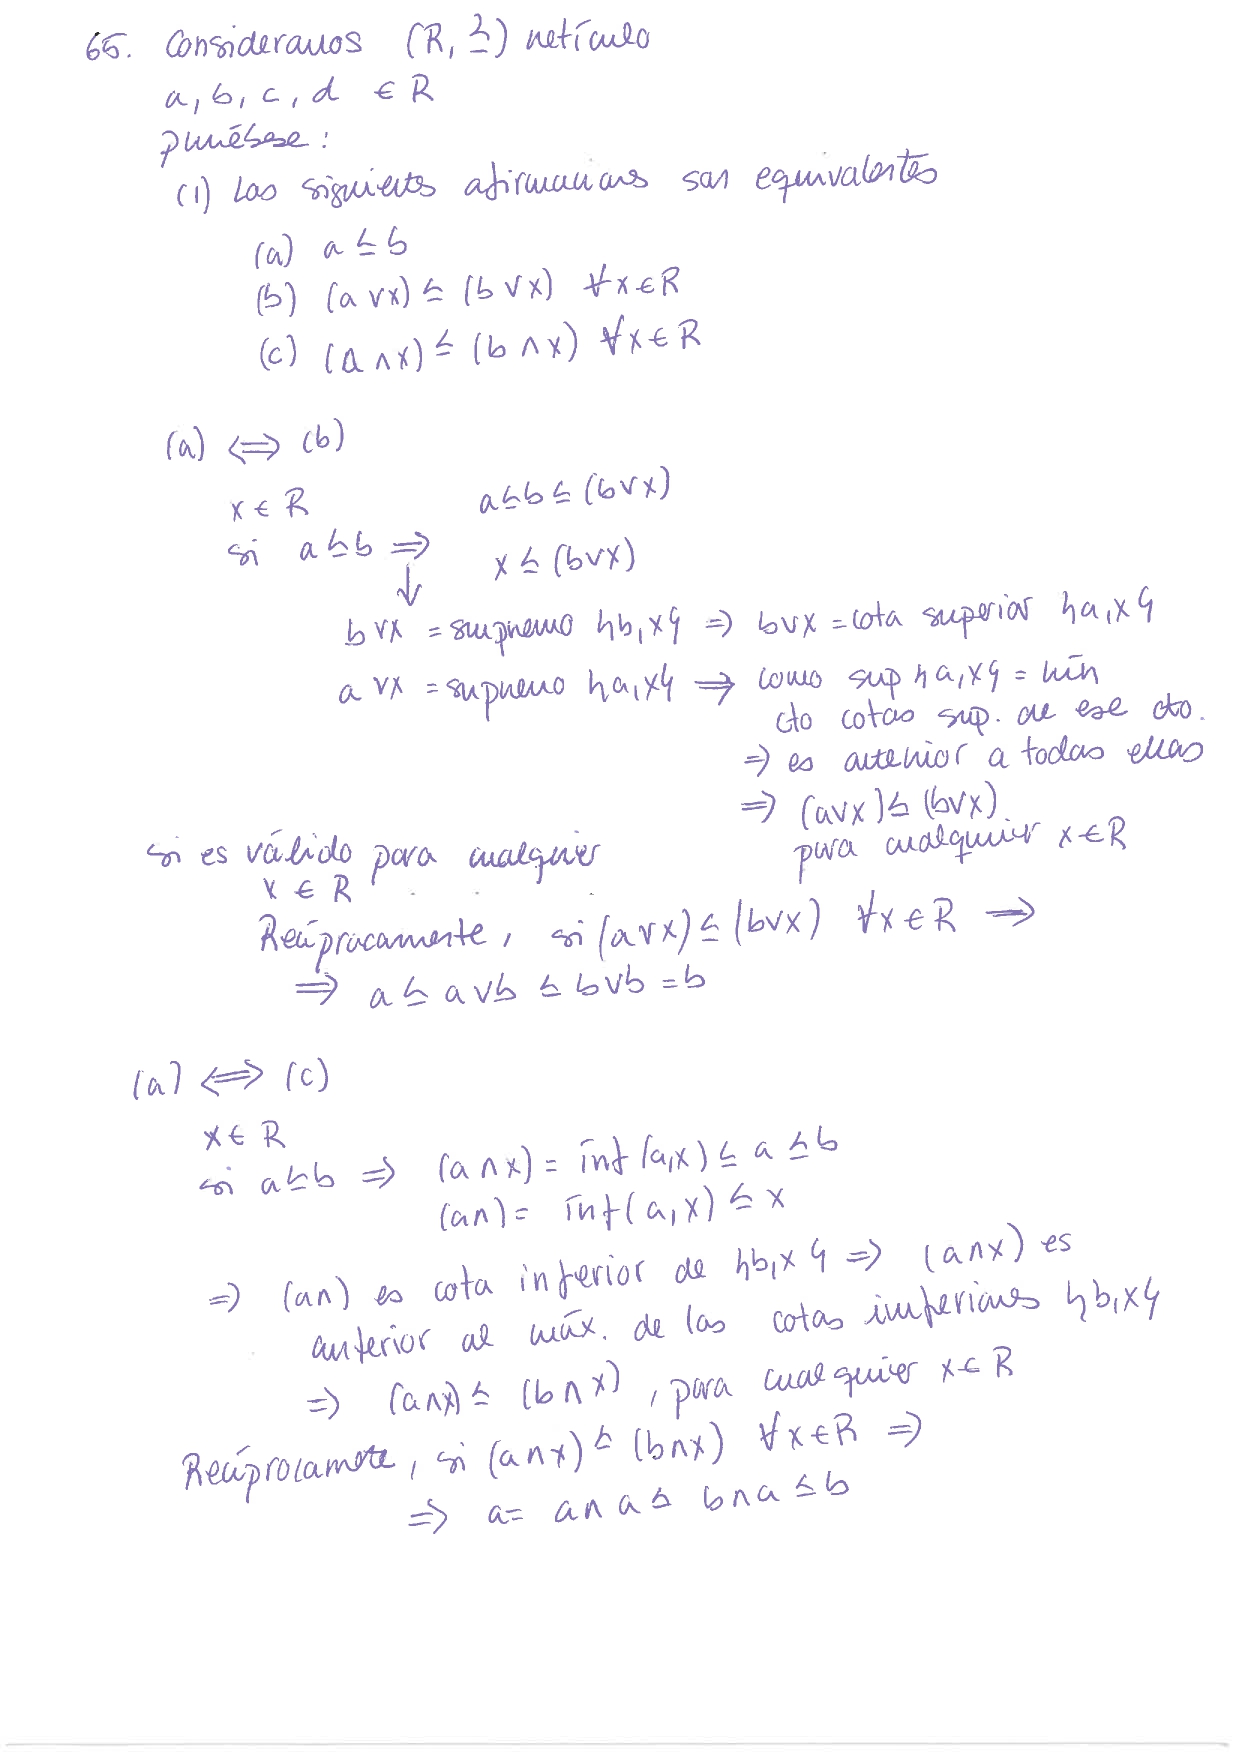 65. Consideramos (R, ≤) retículo
a, b, c, d ∈ R
pruébese:
(1) Las siguients afirmacions son equivalentes
(a) a ≤ b
(b) (a ∨ x) ≤ (b ∨ x) ∀x ∈ R
(c) (a ∧ x) ≤ (b ∧ x) ∀x ∈ R
(a) ⟺ (b)
x ∈ R a ≤ b ≤ (b ∨ x)
si a ≤ b ⟹ x ≤ (b ∨ x)
↓
b ∨ x = supremo {b, x} ⟹ b ∨ x = cota superior {a, x}
a ∨ x = supremo {a, x} ⟹ como sup {a, x} = mín
cto cotas sup. de ese cto.
⟹ es anterior a todas ellas
⟹ (a ∨ x) ≤ (b ∨ x)
para cualquier x ∈ R
si es válido para cualquier
x ∈ R
Recíprocamente, si (a ∨ x) ≤ (b ∨ x) ∀x ∈ R ⟹
⟹ a ≤ a ∨ b ≤ b ∨ b = b
(a) ⟺ (c)
x ∈ R
si a ≤ b ⟹ (a ∧ x) = ínf (a, x) ≤ a ≤ b
(a ∧) = ínf (a, x) ≤ x
⟹ (a ∧) es cota inferior de {b, x} ⟹ (a ∧ x) es
anterior al máx. de las cotas inferiores {b, x}
⟹ (a ∧ x) ≤ (b ∧ x), para cualquier x ∈ R
Recíprocamete, si (a ∧ x) ≤ (b ∧ x) ∀x ∈ R ⟹
⟹ a = a ∧ a ≤ b ∧ a ≤ b